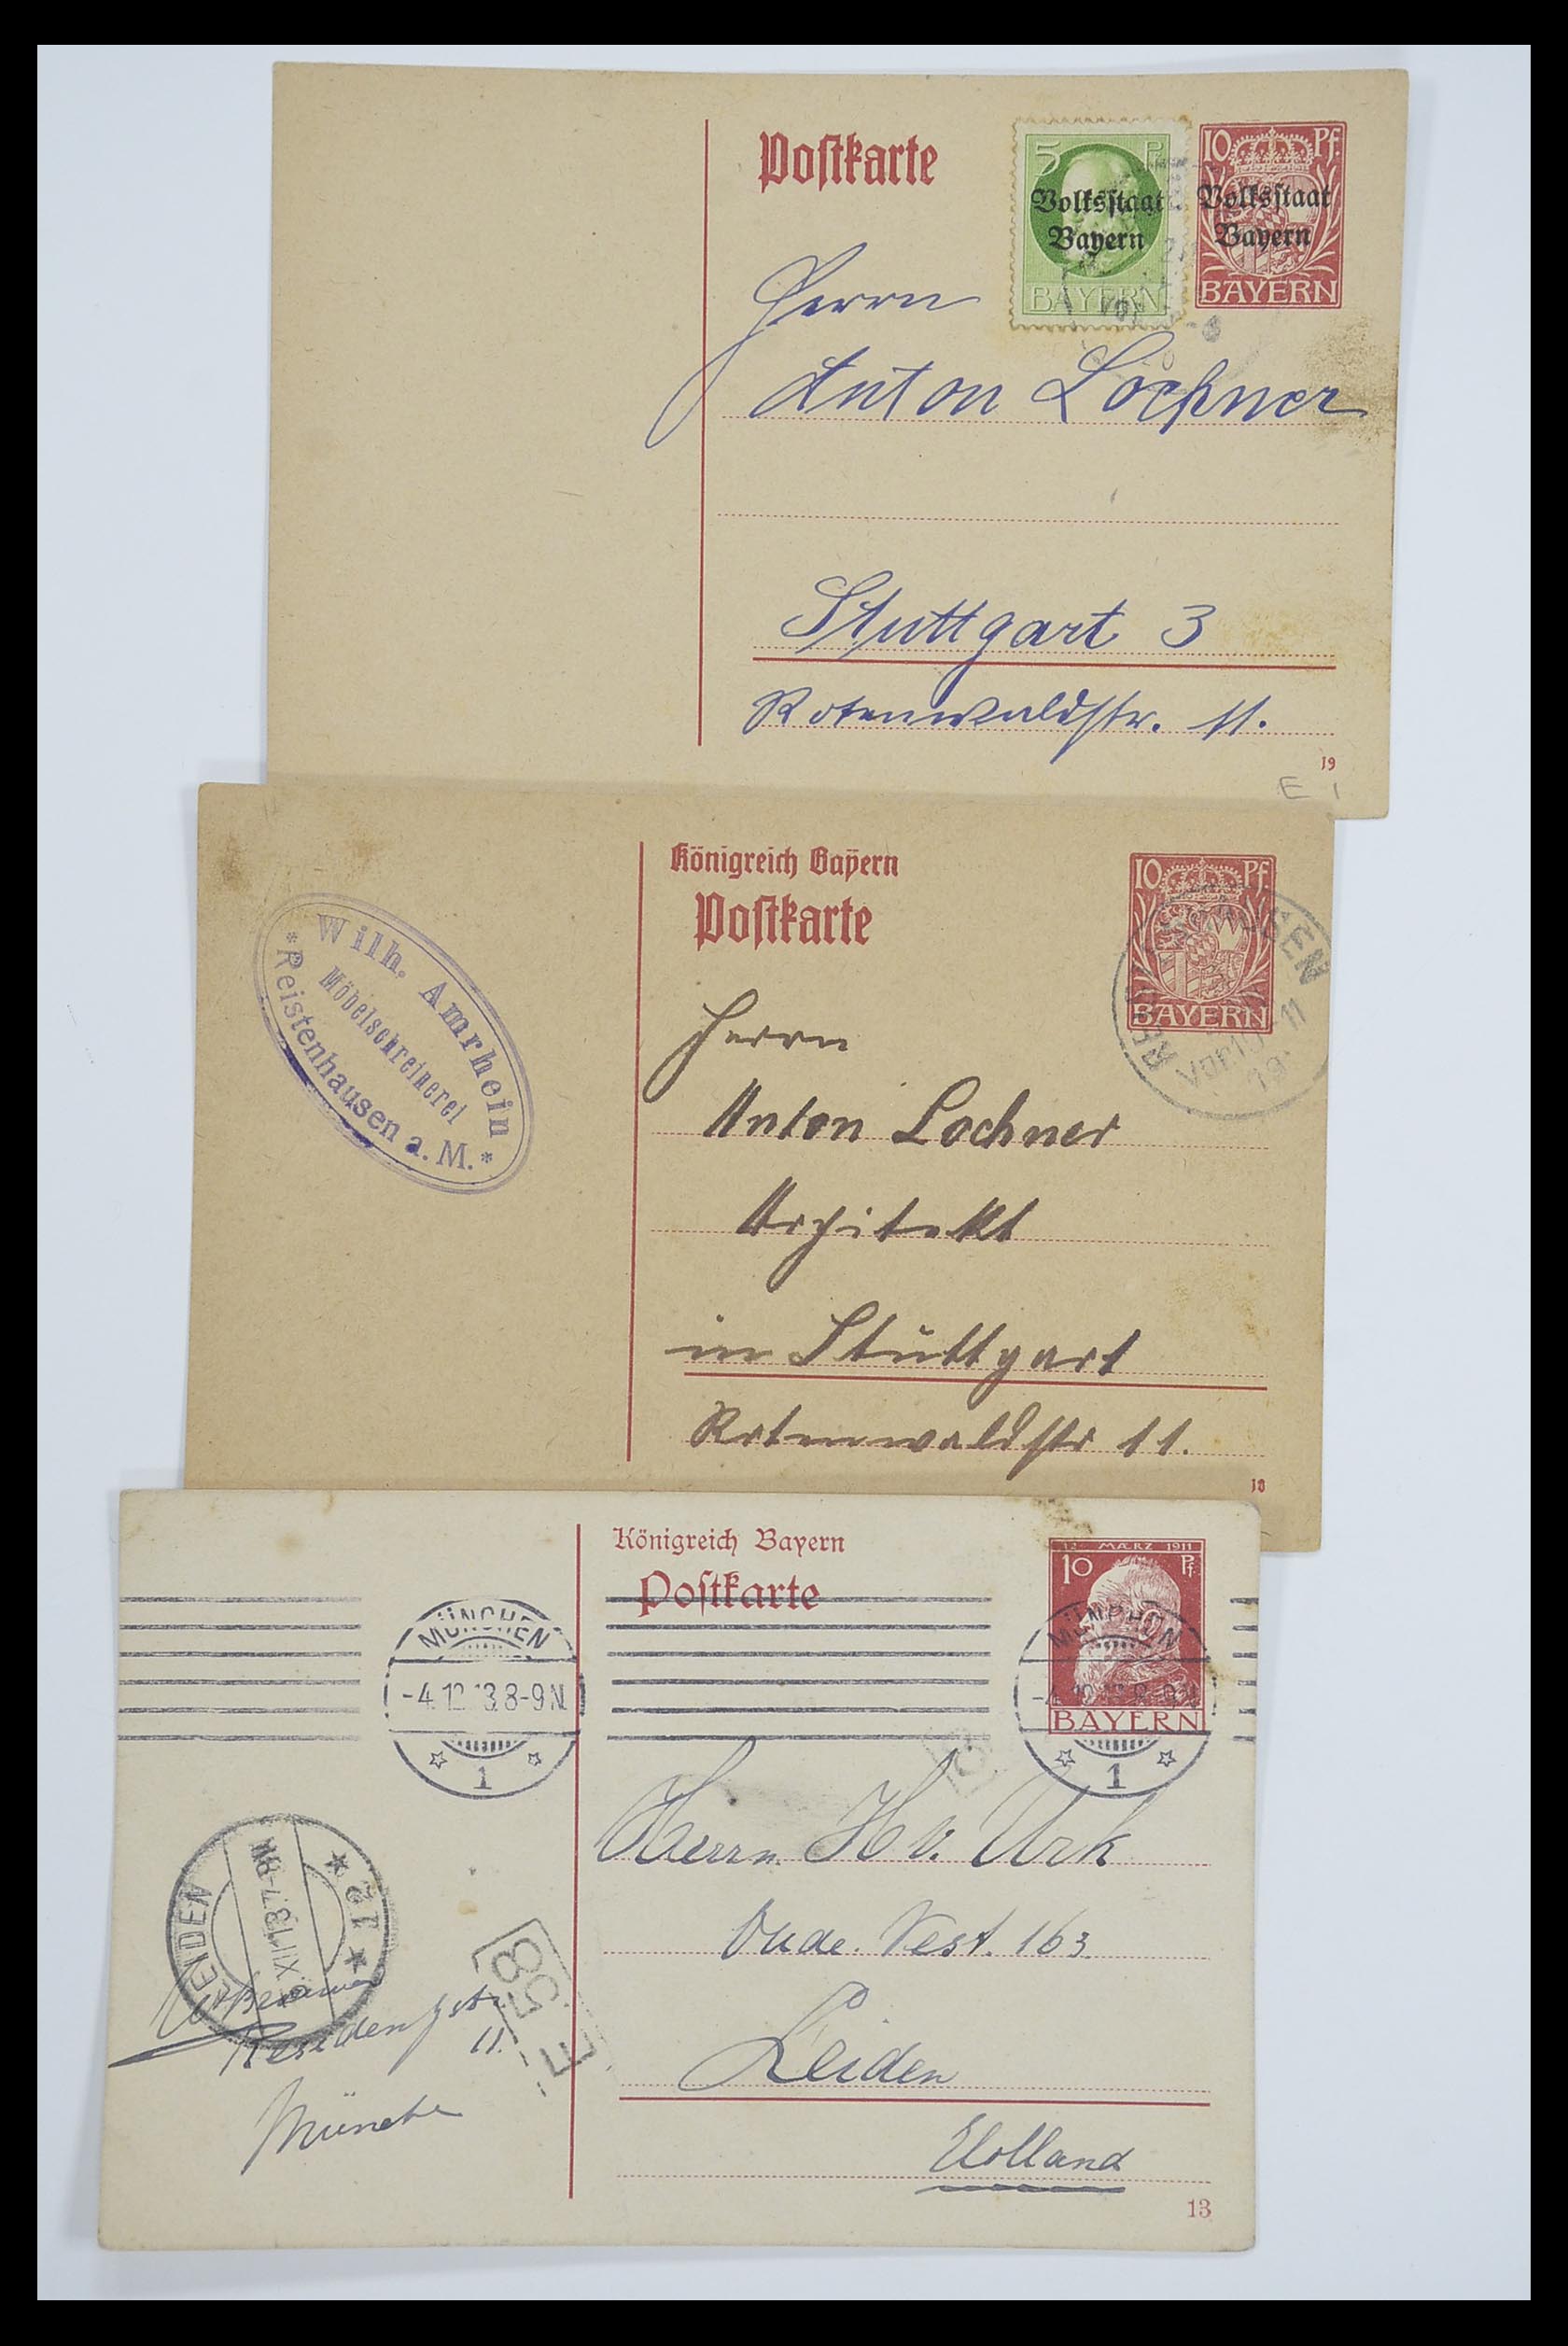 Postkarte
5 Pf
Volksstaat
Bayern
BAYERN
10 Pf.
Volksstaat
Bayern
BAYERN
Herrn
Anton Lochner
Stuttgart 3
Rotenwaldstr. 11.
19
E 1
Königreich Bayern
Postkarte
10 Pf
BAYERN
Wilh. Amrhein
Möbelschreinerei
*Reistenhausen a. M.*
Herrn
Anton Lochner
Architekt
in Stuttgart
Rotenwaldstr 11.
18
Königreich Bayern
Postkarte
12. MÆRZ 1911
10 Pf.
BAYERN
MÜNCHEN
-4.12.13.8-9N
1
MÜNCHEN
-4.12.13.8-9N
1
Herrn H v. Urk
Oude. Vest. 163
Leiden
Holland
LEIDEN
* 12 *
6.XII.13.7-8N
58
E
Residenzstr.
11.
München
13